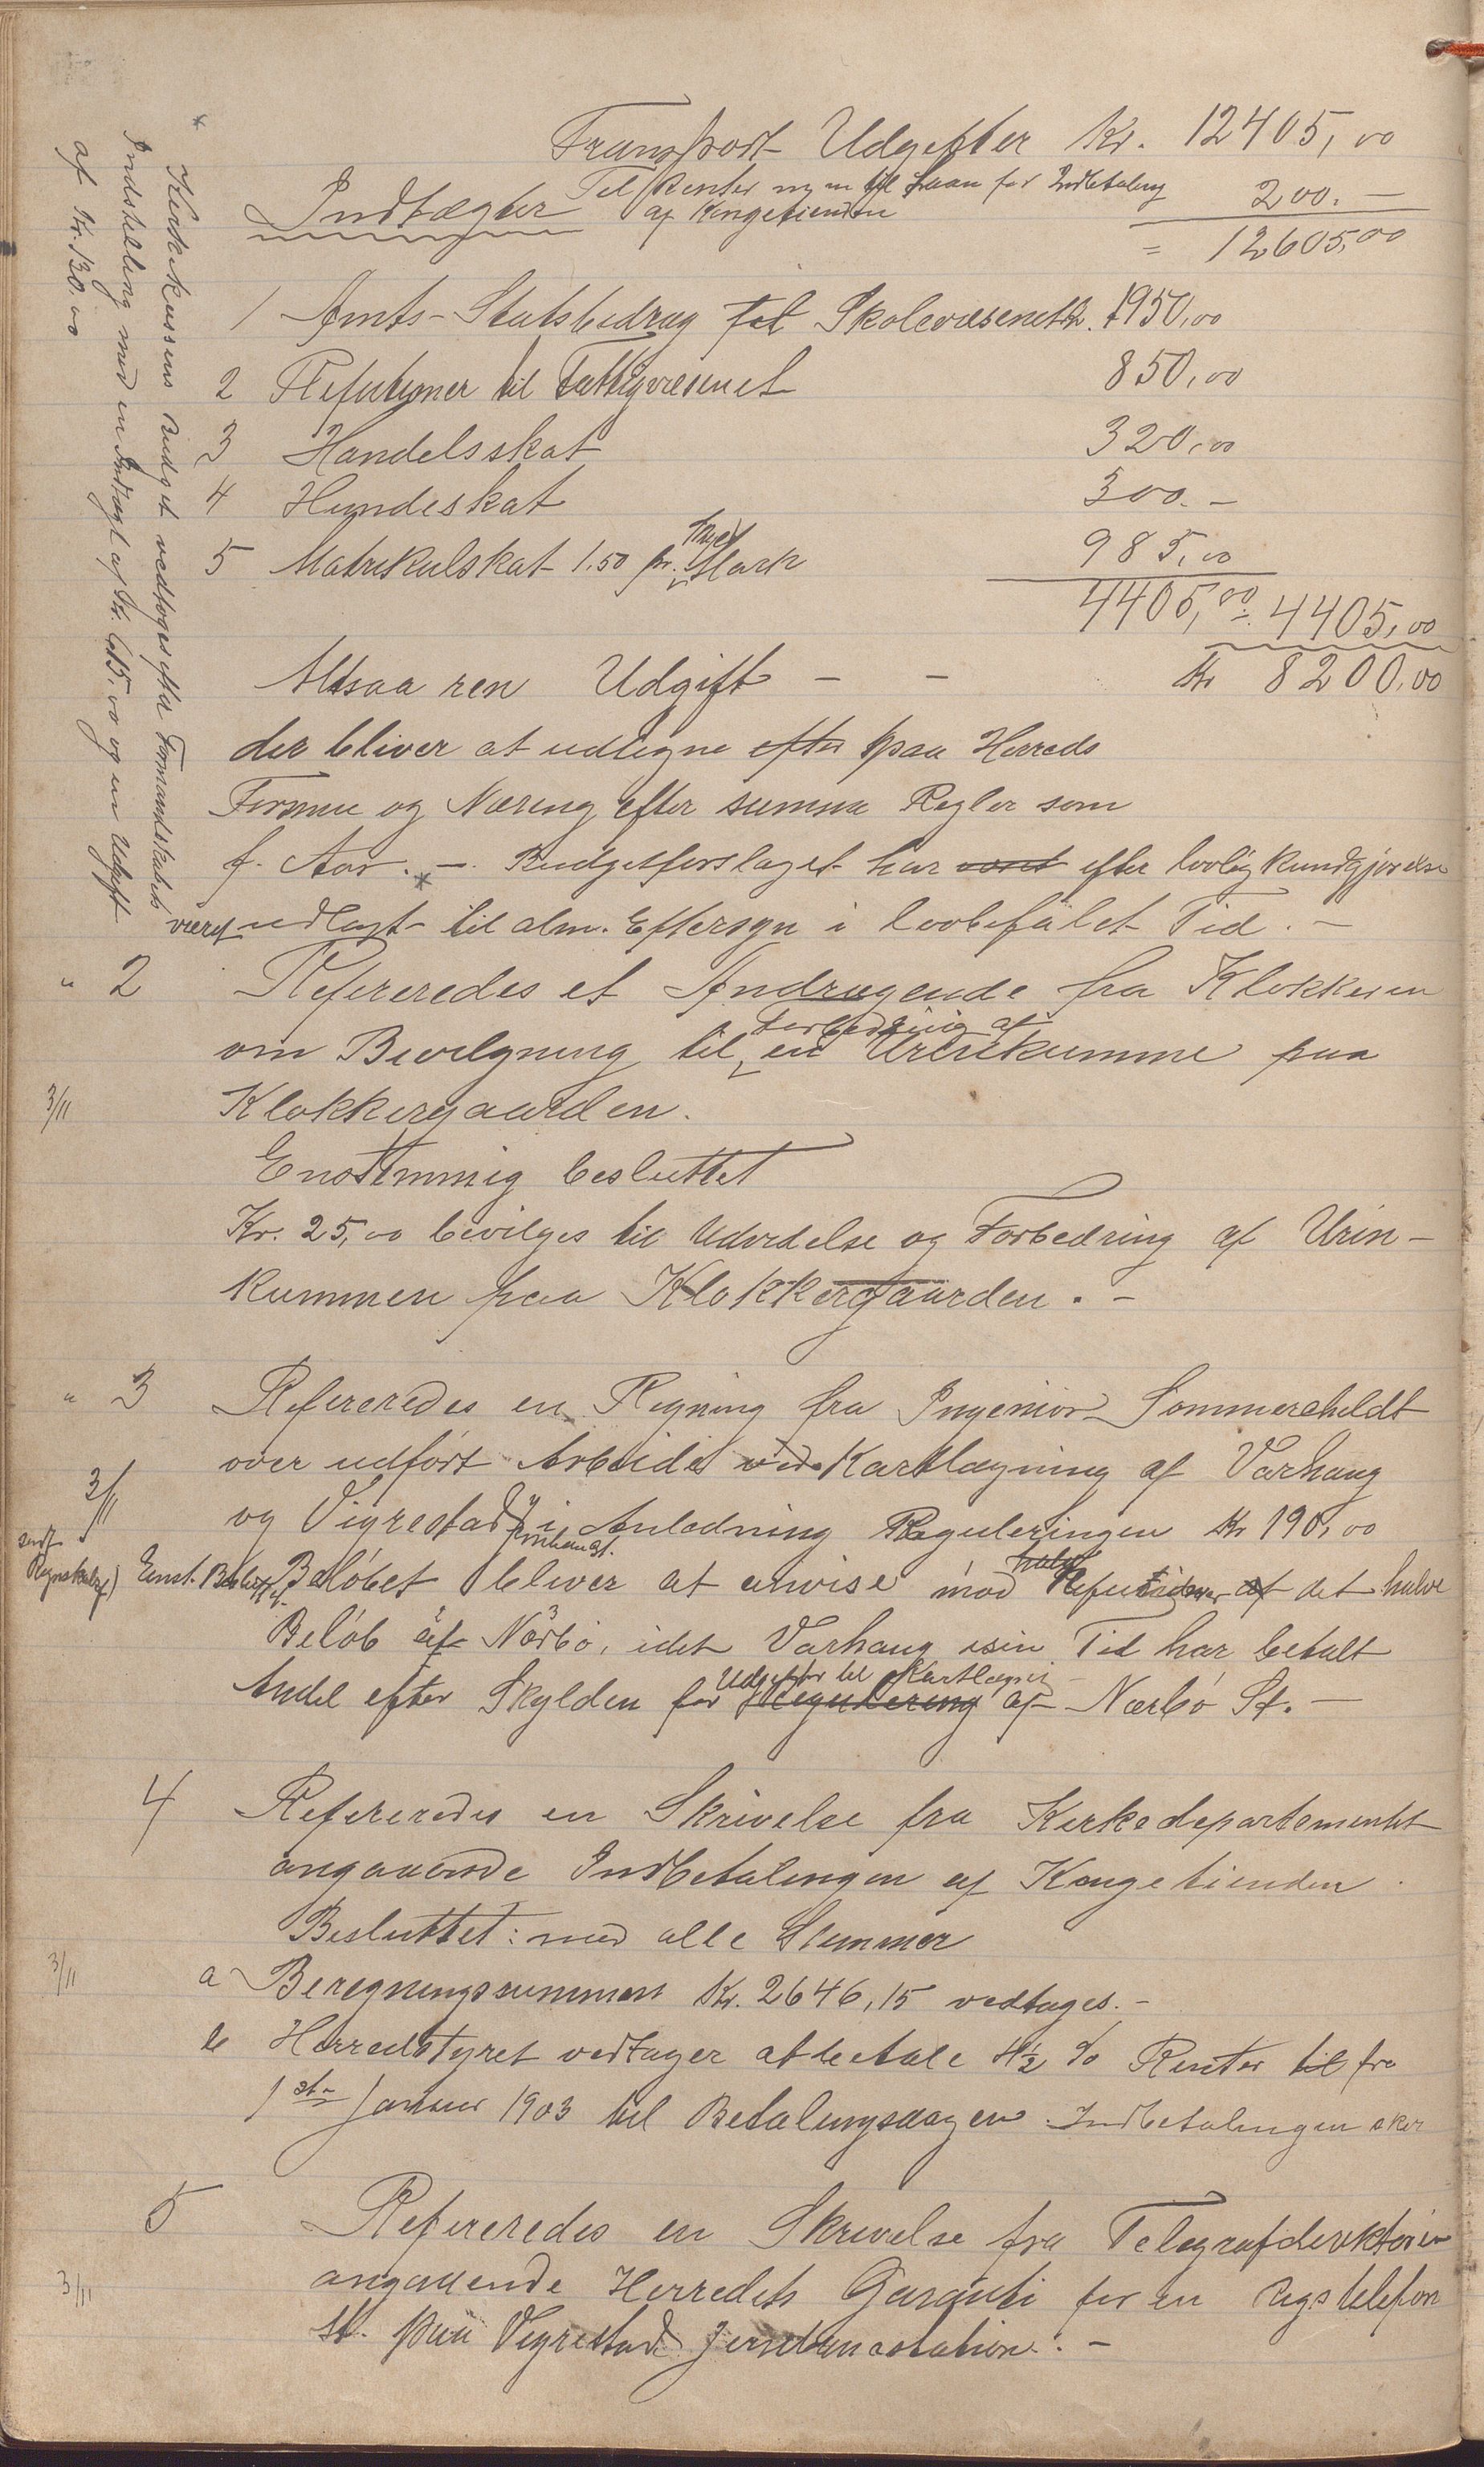 Transport Udgifter Kr. 12405,00
Til Renter til Laan for Indbetaling 200.-
Indtægter af Kongetienden
= 12605,00
1 Amts-Statsbidrag til Skolevæsenet Kr. 1950,00
2 Refutioner til Fattigvæsenet 850,00
3 Handelsskat 320,00
4 Hundeskat 300.-
5 Matrikulskat 1.50 pr. Skyld Mark 985,00
4405,00 = 4405,00
Altsaa ren Udgift - - Kr 8200,00
der bliver at udligne efter paa Herreds
Formue og Næring efter samme Regler som
f. Aar. -. * Budgetforslaget har været efter lovlig Kundgjørelse
været udlagt til alm. Eftersyn i lovbefalet Tid. -
* Kirkekassens Budget vedtoges efter Formandskabets
Indstilling med en Indtægt af Kr. 615,00 og en Udgift
af Kr. 130.00
" 2 Refereredes et Andragende fra Klokkeren
om Bevilgning til Forbedring af en Urinkumme paa
3/11 Klokkergaarden.
Enstemmig besluttet
Kr. 25,00 bevilges til Udvidelse og Forbedring af Urin-
kummen paa Klokkergaarden. -
" 3 Refereredes en Regning fra Ingeniør Sommerscheldt
over udført Arbeide ved Kartlægning af Varhaug
3/11 og Vigrestad i Anledning Reguleringen Kr 190,00
sendt
Regnskabsf) Enst. Besluttet Beløbet bliver at anvise mod Refusion af det halve
Beløb af Nærbø, idet Varhaug i sin Tid har betalt
Andel efter Skylden for Udgifter til Kartlægning Regulering af Nærbø St. -
4 Refereredes en Skrivelse fra Kirkedepartementet
angaaende Indbetalingen af Kongetienden.
Besluttet: med alle Stemmer
3/11 a Beregningssummen Kr. 2646,15 vedtages. -
b Herredstyret vedtager at betale 4½ % Renter til fra
1ste Januar 1903 til Betalingsdagen. Indbetalingen sker
5 Refereredes en Skrivelse fra Telegrafdirektøren
3/11 angaaende Herredets Garanti for en Rigstelefon
st. paa Vigrestad Jernbanestation. -